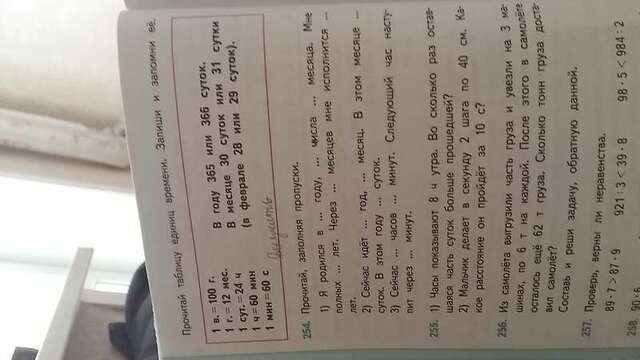 Прочитай таблицу единиц времени. Запиши и запомни её.
1 в. = 100 г.
1 г. = 12 мес.
1 сут. = 24 ч
1 ч = 60 мин
1 мин = 60 с
В году 365 или 366 суток.
В месяце 30 суток или 31 сутки
(в феврале 28 или 29 суток).
254. Прочитай, заполняя пропуски.
1) Я родился в ... году, ... числа ... месяца. Мне
полных ... лет. Через ... месяцев мне исполнится ...
лет.
2) Сейчас идёт ... год, ... месяц. В этом месяце ...
суток. В этом году ... суток.
3) Сейчас ... часов ... минут. Следующий час насту-
пит через ... минут.
255. 1) Часы показывают 8 ч утра. Во сколько раз остав-
шаяся часть суток больше прошедшей?
2) Мальчик делает в секунду 2 шага по 40 см. Ка-
кое расстояние он пройдёт за 10 с?
256. Из самолёта выгрузили часть груза и увезли на 3 ма-
шинах, по 6 т на каждой. После этого в самолёте
осталось ещё 62 т груза. Сколько тонн груза доста-
вил самолёт?
Составь и реши задачу, обратную данной.
257. Проверь, верны ли неравенства.
89 · 7 > 87 · 9 921 : 3 < 39 · 8 98 · 5 < 984 : 2
258. 90 · 6